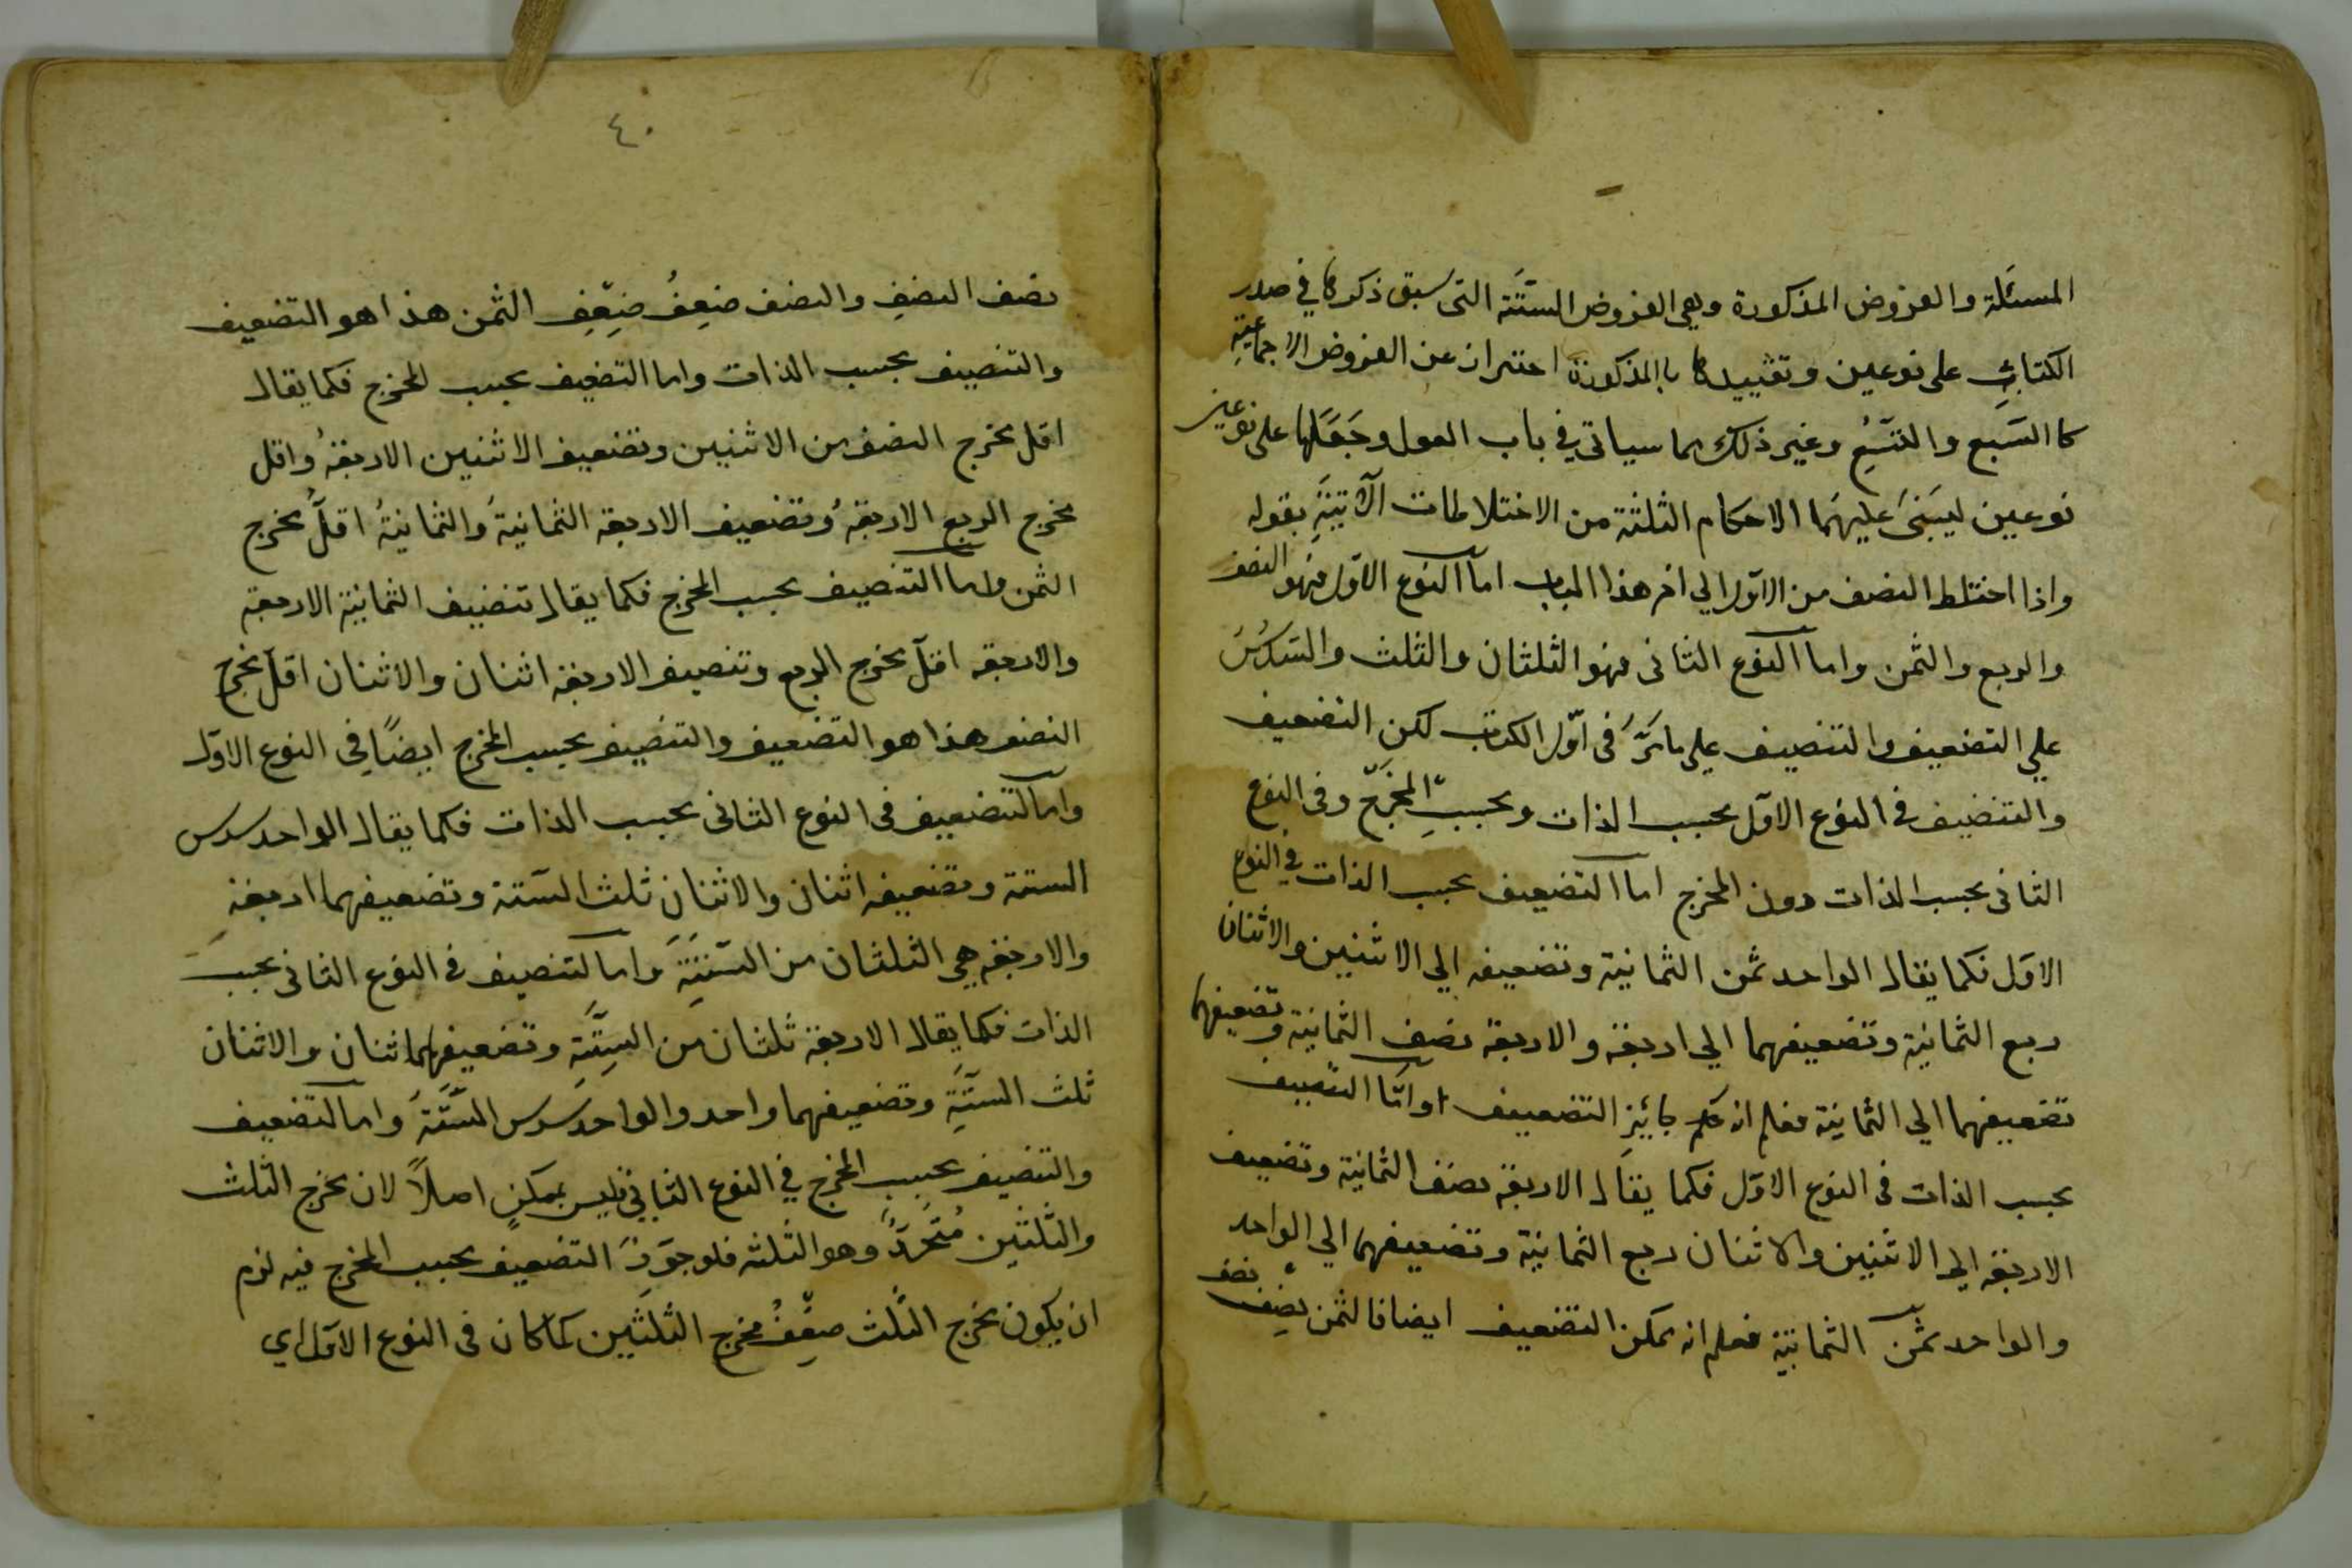 المسئلة والفروض المذكورة وهى الفروض الستّة التى سبق ذكرها في صدر
الكتاب على نوعين وتقييدها بالمذكورة احتراز عن الفروض الاجماعية
كالسَبع والتسع وغير ذلك مما سياتي في باب العول وجَعَلها على نوعين
نوعين ليبنىَ عليهمَا الاحكام الثلثة من الاختلاطات الآتية بقوله
واذا اختلط النصف من الاوّل الي اخر هذا الباب اما النوع الاوّل فهو النصف
والربع والثمن واما النوع الثانى فهو الثلثان والثلث والسدُسُ
علي التضعيف والتنصيف علي ما مَرَّ فى اوّل الكتاب لكن التضعيف
والتنصيف في النوع الاوّل بحسب الذات وبحسبِ المخرَج وفى النوع
الثانى بحسب الذات دون المخرج اما التضعيف بحسب الذات في النوع
الاوّل فكما يقال الواحد ثمن الثمانية وتضعيفه الي الاثنين والاثنان
ربع الثمانية وتضعيفهما الي اربعة والاربعة نصف الثمانية وتضعيفهما
تضعيفهما الي الثمانية فعلم ان جايئز التضعيف وامّا التنصيف
بحسب الذات فى النوع الاوّل فكما يقال الاربعة نصف الثمانية وتضعيف
الاربعة الي الاثنين والاثنان ربع الثمانية وتضعيفهما الي الواحد
والواحد ثمن الثمانية فعلم انه يمكن التضعيف ايضا فالثمن نصِف نصف
٤٠
نصف النصفِ والنصف ضعِفُ ضِعِّفِ الثمن هذا هو التضعيف
والتنصيف بحسب الذات واما التضعيف بحسب المخرج فكما يقال
اقل مخرج النصف من الاثنين وتضعيف الاثنين الاربعةُ واقل
مخرج الربع الاربعةُ وتضعيف الاربعة الثمانيةَ والثمانيةُ اقلُّ مخرج
الثمن واما التنصيف بحسب المخرج فكما يقال تنضيف الثمانية الاربعة
والاربعة اقلّ مخرج الربع وتنصيف الاربعة اثنان والاثنان اقلّ مخرج
النصف هذا هو التضعيف والتنصيف بحسب المخرج ايضًا في النوع الاوّل
واما التضعيف فى النوع الثانى بحسب الذات فكما يقال الواحد سدس
الستة وتضعيفه اثنان والاثنان ثلث السّتة وتضعيفهما اربعة
والاربعة هي الثلثان من السّتةَ واما التنصيف في النوع الثانى بحسب
الذات فكما يقال الاربعة ثلثان من السِتَّةِ وتضعيفهما اثنان والاثنان
ثلث الستّةِ وتضعيفهما واحد والواحد سدس السّتّةَ واما التضعيف
والتنصيف بحسبِ المخرج في النوع الثاني فليس بممكنٍ اصلاً لان مخرج الثلث
والثلثين مُتّحدٌ وهو الثلثه فلو جوّزَ التضعيف بحسب المخرج فيه لزم
ان يكون مخرج الثلث ضِعّفُ مخرج الثلثين كما كان فى النوع الاوّل اي